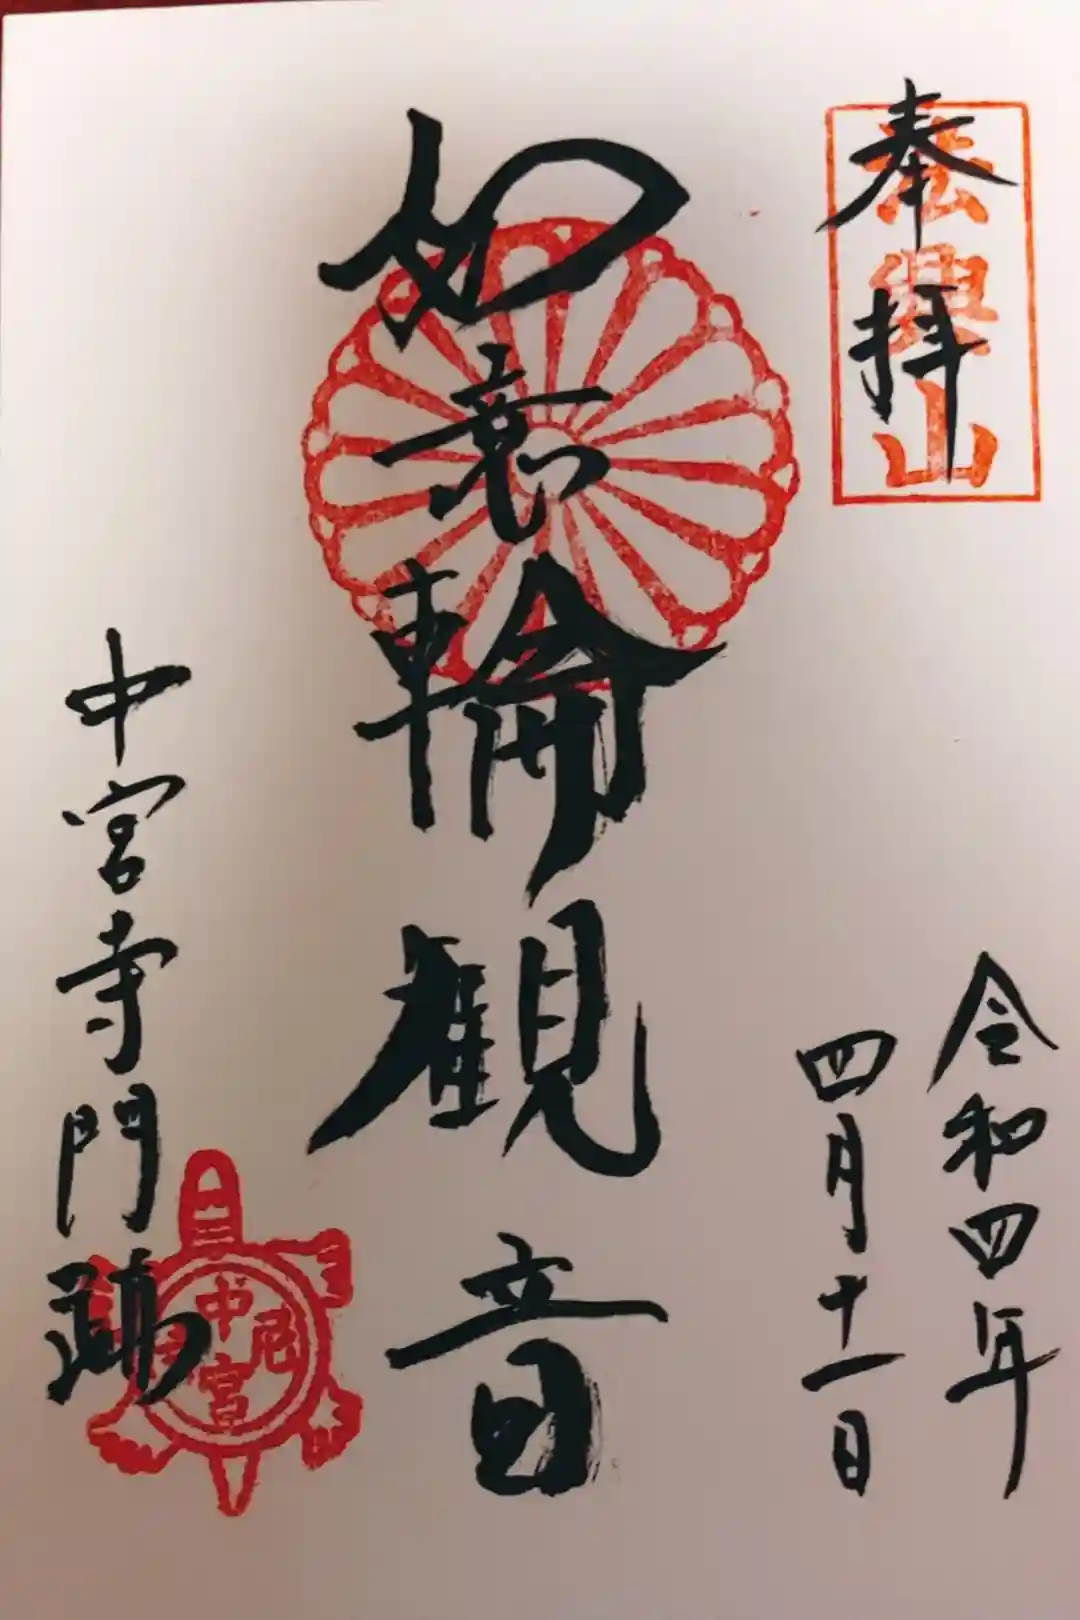 奉拝
法興山
令和四年
四月十一日
如意輪観音
中宮寺門跡
中宮尼寺